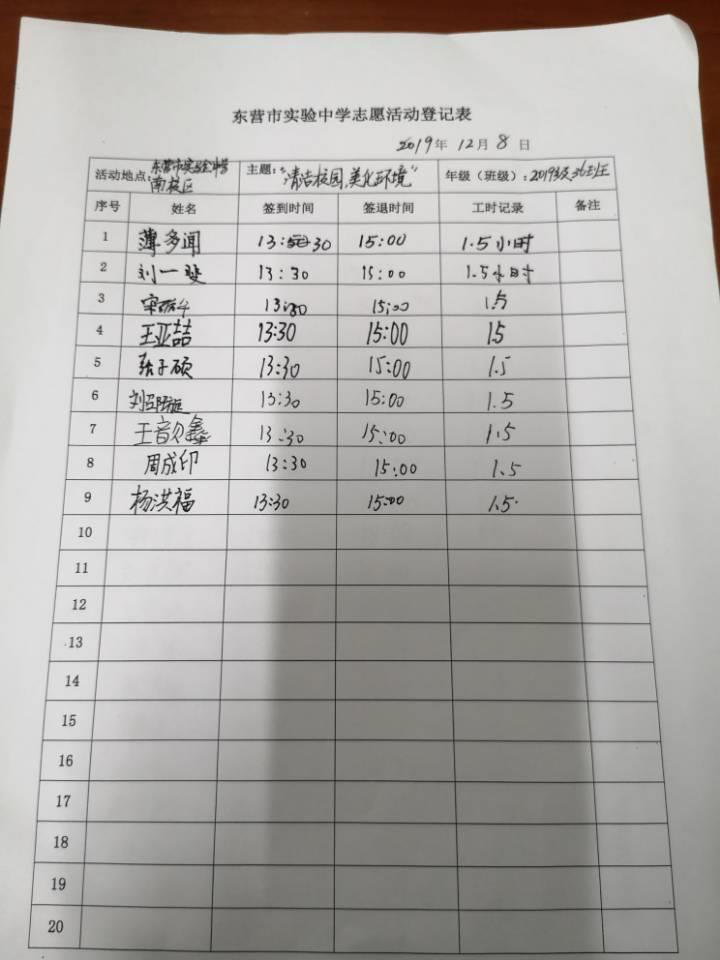 东营市实验中学志愿活动登记表
2019年 12月 8 日
活动地点:东营市实验中学南校区 主题:"清洁校园,美化环境" 年级(班级):2019级36班
序号 姓名 签到时间 签退时间 工时记录 备注
1 薄多闻 13:30 15:00 1.5小时
2 刘一 13:30 15:00 1.5小时
3 13:30 15:00 1.5
4 王亚喆 13:30 15:00 1.5
5 张子硕 13:30 15:00 1.5
6 刘 13:30 15:00 1.5
7 王音贝鑫 13:30 15:00 1.5
8 周成印 13:30 15:00 1.5
9 杨洪福 13:30 15:00 1.5
10
11
12
13
14
15
16
17
18
19
20